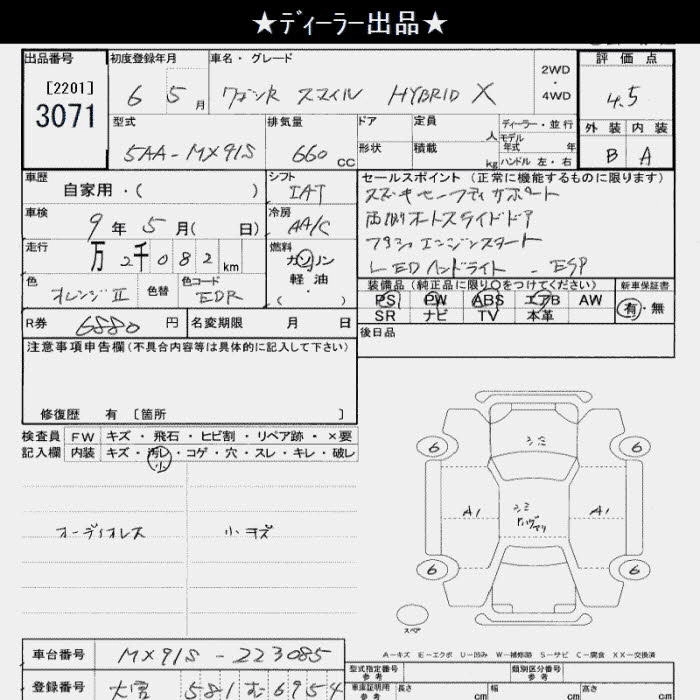 ★ディーラー出品★
出品番号 初度登録年月 車名・グレード 評価点
[2201]
3071
6 5月 ワゴンR スマイル HYBRID X 2WD・4WD 4.5
型式 排気量 ドア 定員 人 ディーラー・並行 外装 内装
モデル年式 年
5AA-MX91S 660 CC 形状 積載 kg ハンドル 左・右 B A
車歴 自家用・( ) シフト IAT セールスポイント (正常に機能するものに限ります)
スズキセーフティサポート
車検 9年 5月( 日) 冷房 AA/C 両側オートスライドドア
走行 万 2千082km 燃料 ガソリン・軽油 ( ) プッシュエンジンスタート
LEDヘッドライト - ESP
色 オレンジII 色替 色コード EDR
装備品 (純正品に限り○をつけてください) 新車保証書
PS PW ABS エアB AW 有・無
SR ナビ TV 本革
R券 6880円 名変期限 月 日 後日品
注意事項申告欄(不具合内容等は具体的に記入して下さい)
修復歴 有 [箇所 ]
検査員 FW キズ・飛石・ヒビ割・リペア跡・×要
記入欄 内装 キズ・汚レ・コゲ・穴・スレ・キレ・破レ
小
オーディオレス 小キズ
6 6
A1 A1
6 6
スペア
A-キズ E-エクボ U-凹み W-補修跡 S-サビ C-腐食 XX-交換済
車台番号 MX91S-223085
型式指定番号 類別区分番号
登録番号 大宮 581 む 6954
車庫証明用参考 長さ cm 幅 cm 高さ cm